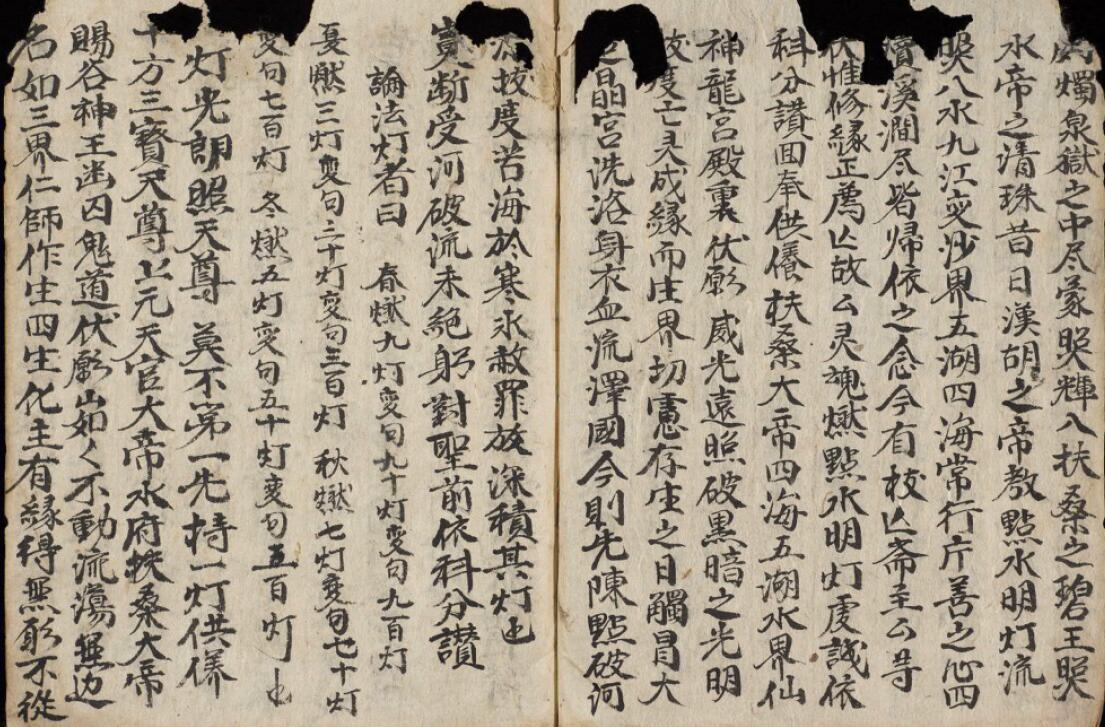 燭泉獄之中尽蒙照輝八扶桑之碧王照
水帝之清珠昔日漢胡之帝教點水明灯流
照八水九江变沙界五湖四海常行片善之心四
瀆溪澗尽皆帰依之念今有校亾斎主厶等
伏惟修緣正薦亾故厶灵魂燃點水明灯虔誠依
科分讃回奉供養扶桑大帝四海五湖水界仙
神龍宮殿裏伏願威光遠照破黑暗之光明
度亡灵成緣而生界切慮存生之日觸冒大
晶宮洗浴身衣血流澤國今則先陳點破河
拔度苦海於寒氷赦罪放深積其灯也
断受河破流未絶躬對聖前依科分讃
論法灯者曰 春燃九灯变句九十灯变句九百灯
夏燃三灯变句三十灯变句三百灯 秋燃七灯变句七十灯
变句七百灯 冬燃五灯变句五十灯变句五百灯也
灯光朗照天尊 莫不第一先持一灯供养
十方三寳天尊上元天官大帝水府扶桑大帝
賜谷神王幽囚鬼道伏願山如く不動流蕩無边
名如三界仁師作生四生化主有緣得無形不從